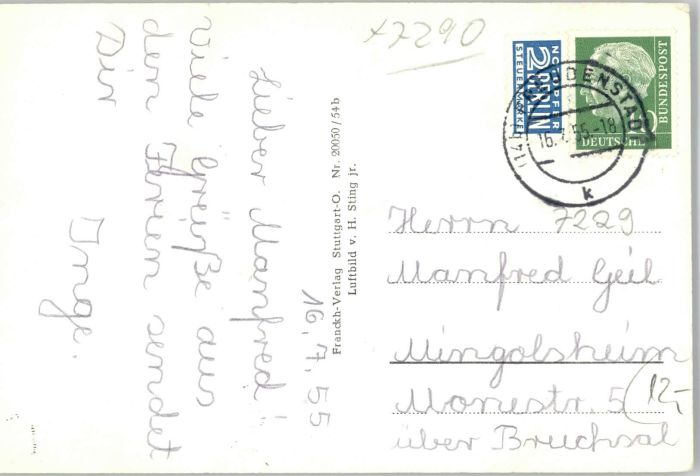 x7290
16.7.55
Lieber Manfred!
Viele Grüße aus
den Ferien sendet
Dir
Inge.
Franckh-Verlag Stuttgart-O. Nr. 20050/54b
Luftbild v. H. Sting jr.
NOTOPFER
2 BERLIN
STEUERMARKE
DEUTSCHE
BUNDESPOST
FREUDENSTADT
55-18
k
Herrn 7229
Manfred Geil
Mingolsheim
Monestr. 5
12,-
über Bruchsal